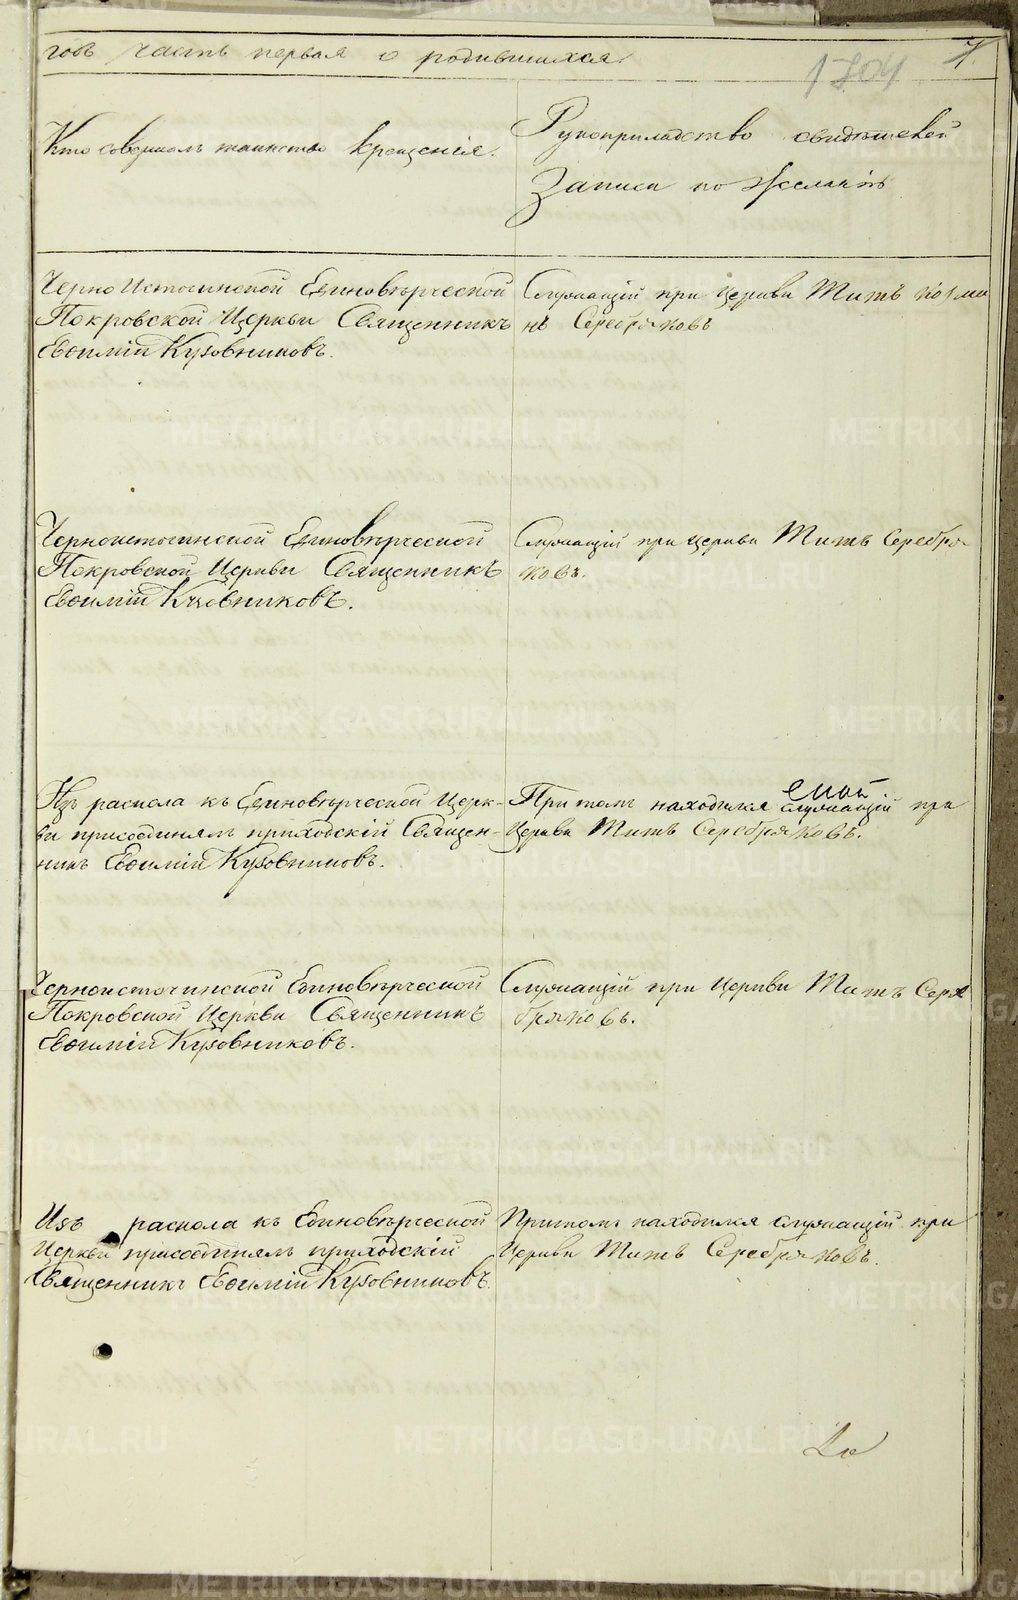 говъ часть первая о родившихся
1704
7.
Кто совершалъ таинство крещенія.
Рукоприкладство свидѣтелей
Записи по желанію
Черно Источинской Единовѣрческой
Покровской Церкви Священникъ
Евѳимій Кузовниковъ.
Служащій при церкви Титъ Козми
нъ Серебряковъ
Черноисточинской Единовѣрческой
Покровской Церкви Священникъ
Евѳимій Кузовниковъ.
Служащій при церкви Титъ Серебря
ковъ.
Изъ раскола къ Единовѣрческой Церк-
ви присоединялъ приходскій Священ-
никъ Евѳимій Кузовниковъ.
При томъ находился служащій при
Церкви Титъ Серебряковъ.
Черноисточинской Единовѣрческой
Покровской Церкви Священникъ
Евѳимій Кузовниковъ.
Служащій при Церкви Титъ Сере
бряковъ.
Изъ раскола къ Единовѣрческой
Церкви присоединялъ приходскій
Священникъ Евѳимій Кузовниковъ.
Притомъ находился служащій при
Церкви Титъ Серебряковъ.
METRIKI.GASO-URAL.RU